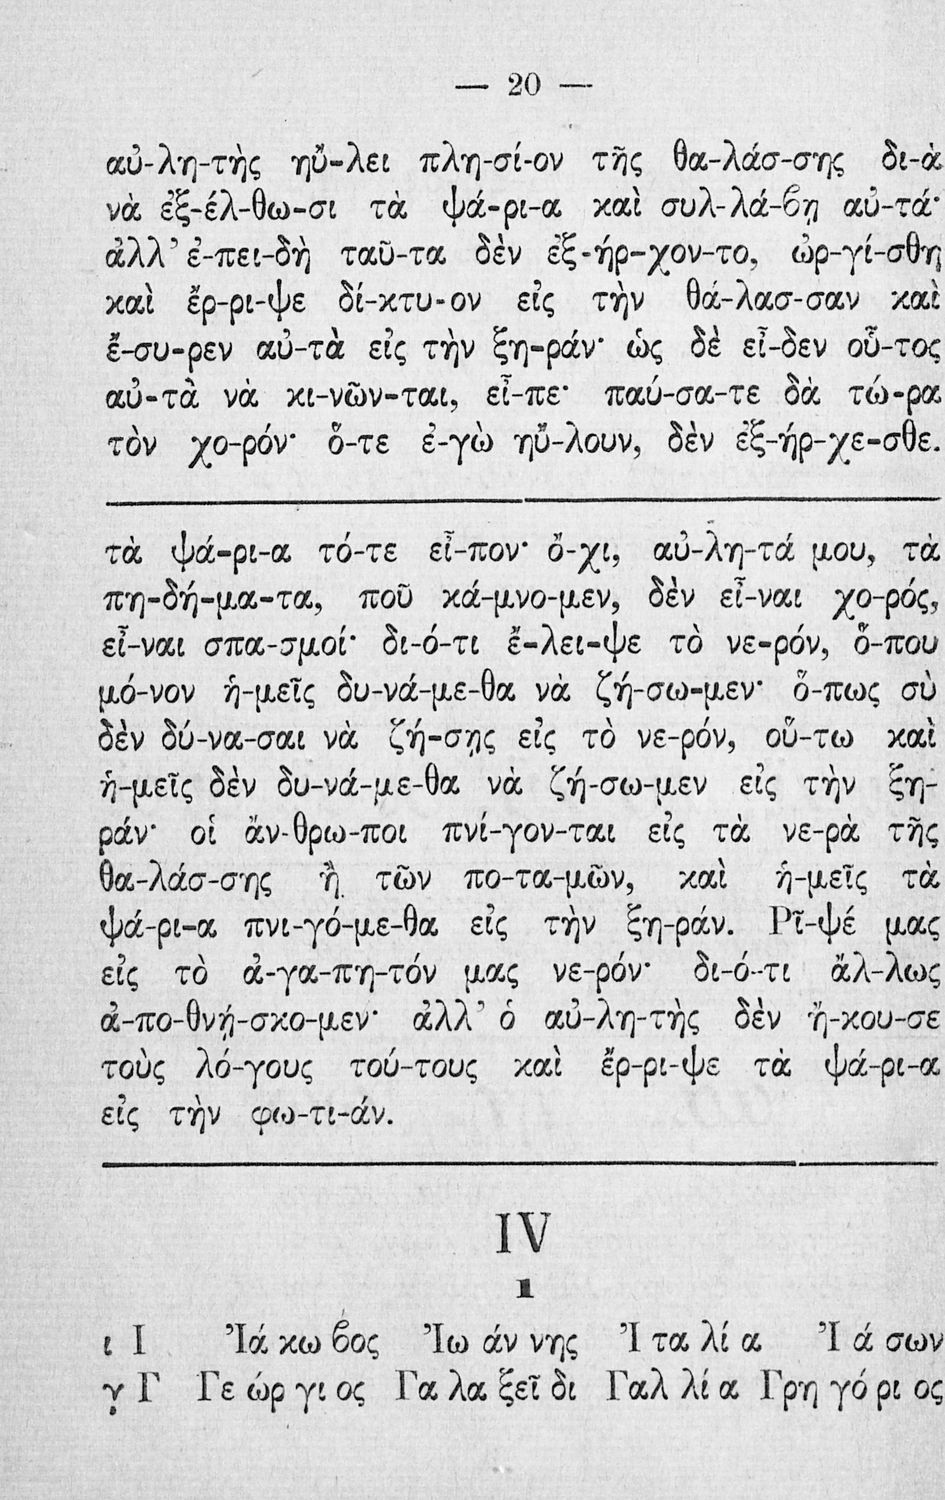 — 20 —
αὐ-λη-τὴς ηὔ-λει πλη-σί-ον τῆς θα-λάσ-σης δι-ὰ
νὰ ἐξ-έλ-θω-σι τὰ ψά-ρι-α καὶ συλ-λά-βῃ αὐ-τά·
ἀλλ' ἐ-πει-δὴ ταῦ-τα δὲν ἐξ-ήρ-χον-το, ὠρ-γί-σθη
καὶ ἔρ-ρι-ψε δί-κτυ-ον εἰς τὴν θά-λασ-σαν καὶ
ἔ-συ-ρεν αὐ-τὰ εἰς τὴν ξη-ράν· ὡς δὲ εἶ-δεν οὗ-τος
αὐ-τὰ νὰ κι-νῶν-ται, εἶ-πε· παύ-σα-τε δὰ τώ-ρα
τὸν χο-ρόν· ὅ-τε ἐ-γὼ ηὔ-λουν, δὲν ἐξ-ήρ-χε-σθε.
τὰ ψά-ρι-α τό-τε εἶ-πον· ὄ-χι, αὐ-λη-τά μου, τὰ
πη-δή-μα-τα, ποῦ κά-μνο-μεν, δὲν εἶ-ναι χο-ρός,
εἶ-ναι σπα-σμοί· δι-ό-τι ἔ-λει-ψε τὸ νε-ρόν, ὅ-που
μό-νον ἡ-μεῖς δυ-νά-με-θα νὰ ζή-σω-μεν· ὅ-πως σὺ
δὲν δύ-να-σαι νὰ ζή-σῃς εἰς τὸ νε-ρόν, οὕ-τω καὶ
ἡ-μεῖς δὲν δυ-νά-με-θα νὰ ζή-σω-μεν εἰς τὴν ξη-
ράν· οἱ ἄν-θρω-ποι πνί-γον-ται εἰς τὰ νε-ρὰ τῆς
θα-λάσ-σης ἢ τῶν πο-τα-μῶν, καὶ ἡ-μεῖς τὰ
ψά-ρι-α πνι-γό-με-θα εἰς τὴν ξη-ράν. Ρῖ-ψέ μας
εἰς τὸ ἀ-γα-πη-τόν μας νε-ρόν· δι-ό-τι ἄλ-λως
ἀ-πο-θνή-σκο-μεν· ἀλλ' ὁ αὐ-λη-τὴς δὲν ἤ-κου-σε
τοὺς λό-γους τού-τους καὶ ἔρ-ρι-ψε τὰ ψά-ρι-α
εἰς τὴν φω-τι-άν.
IV
1
ι Ι Ἰά κω βος Ἰω άν νης Ἰ τα λί α Ἰ ά σων
γ Γ Γε ώρ γι ος Γα λα ξεῖ δι Γαλ λί α Γρη γό ρι ος